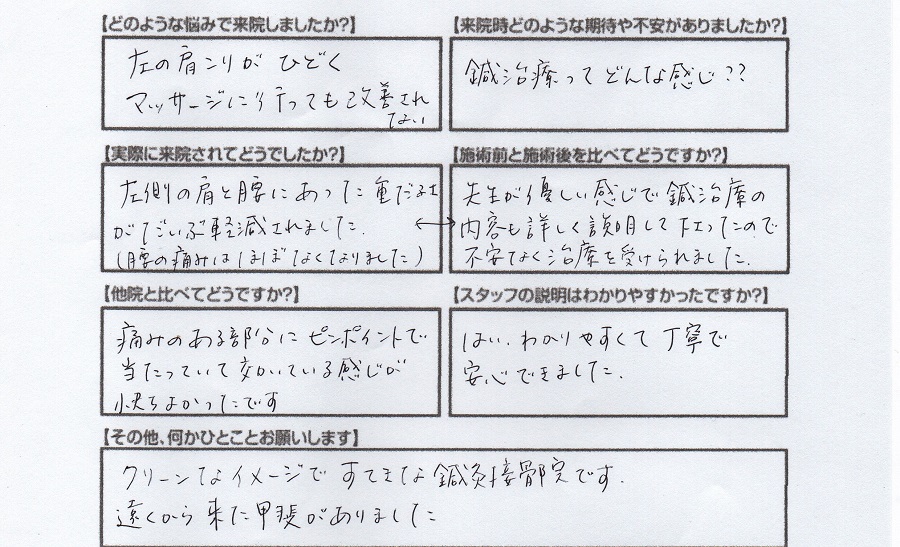 【どのような悩みで来院しましたか?】
左の肩コリが ひどく
マッサージに行っても改善され
ない
【来院時どのような期待や不安がありましたか?】
鍼治療って どんな感じ??
【実際に来院されてどうでしたか?】
左側の肩と腰にあった重だるさ
がだいぶ軽減されました.
(腰の痛みはほぼなくなりました)
【施術前と施術後を比べてどうですか?】
先生が優しい感じで鍼治療の
内容も詳しく説明して下さったので
不安なく治療を受けられました.
【他院と比べてどうですか?】
痛みのある部分にピンポイントで
当たっていて効いている感じが
心地よかったです
【スタッフの説明はわかりやすかったですか?】
はい. わかりやすくて丁寧で
安心できました.
【その他、何かひとことお願いします】
クリーンなイメージで すてきな 鍼灸接骨院です.
遠くから来た甲斐がありました